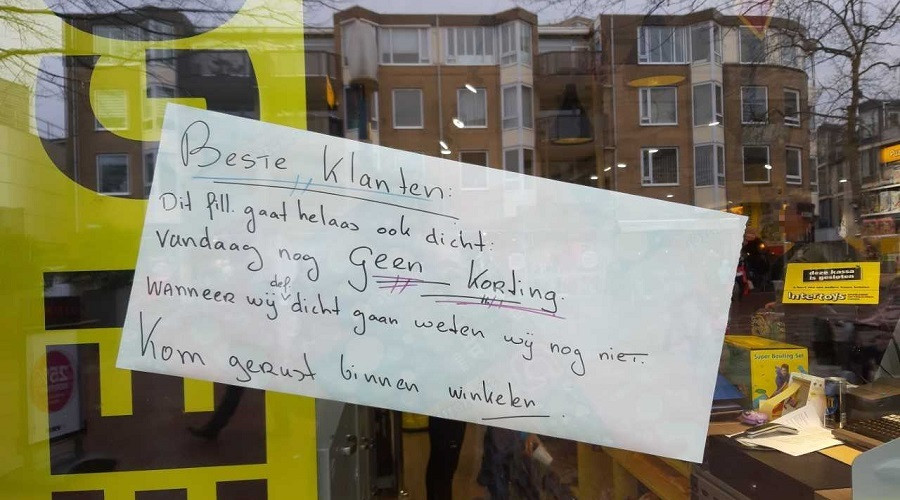 Beste Klanten:
Dit fill. gaat helaas ook dicht:
Vandaag nog Geen Korting.
def.
Wanneer wij dicht gaan weten wij nog niet.
Kom gerust binnen winkelen.
deze kassa
is gesloten
Intertoys
Super Bowling Set
25